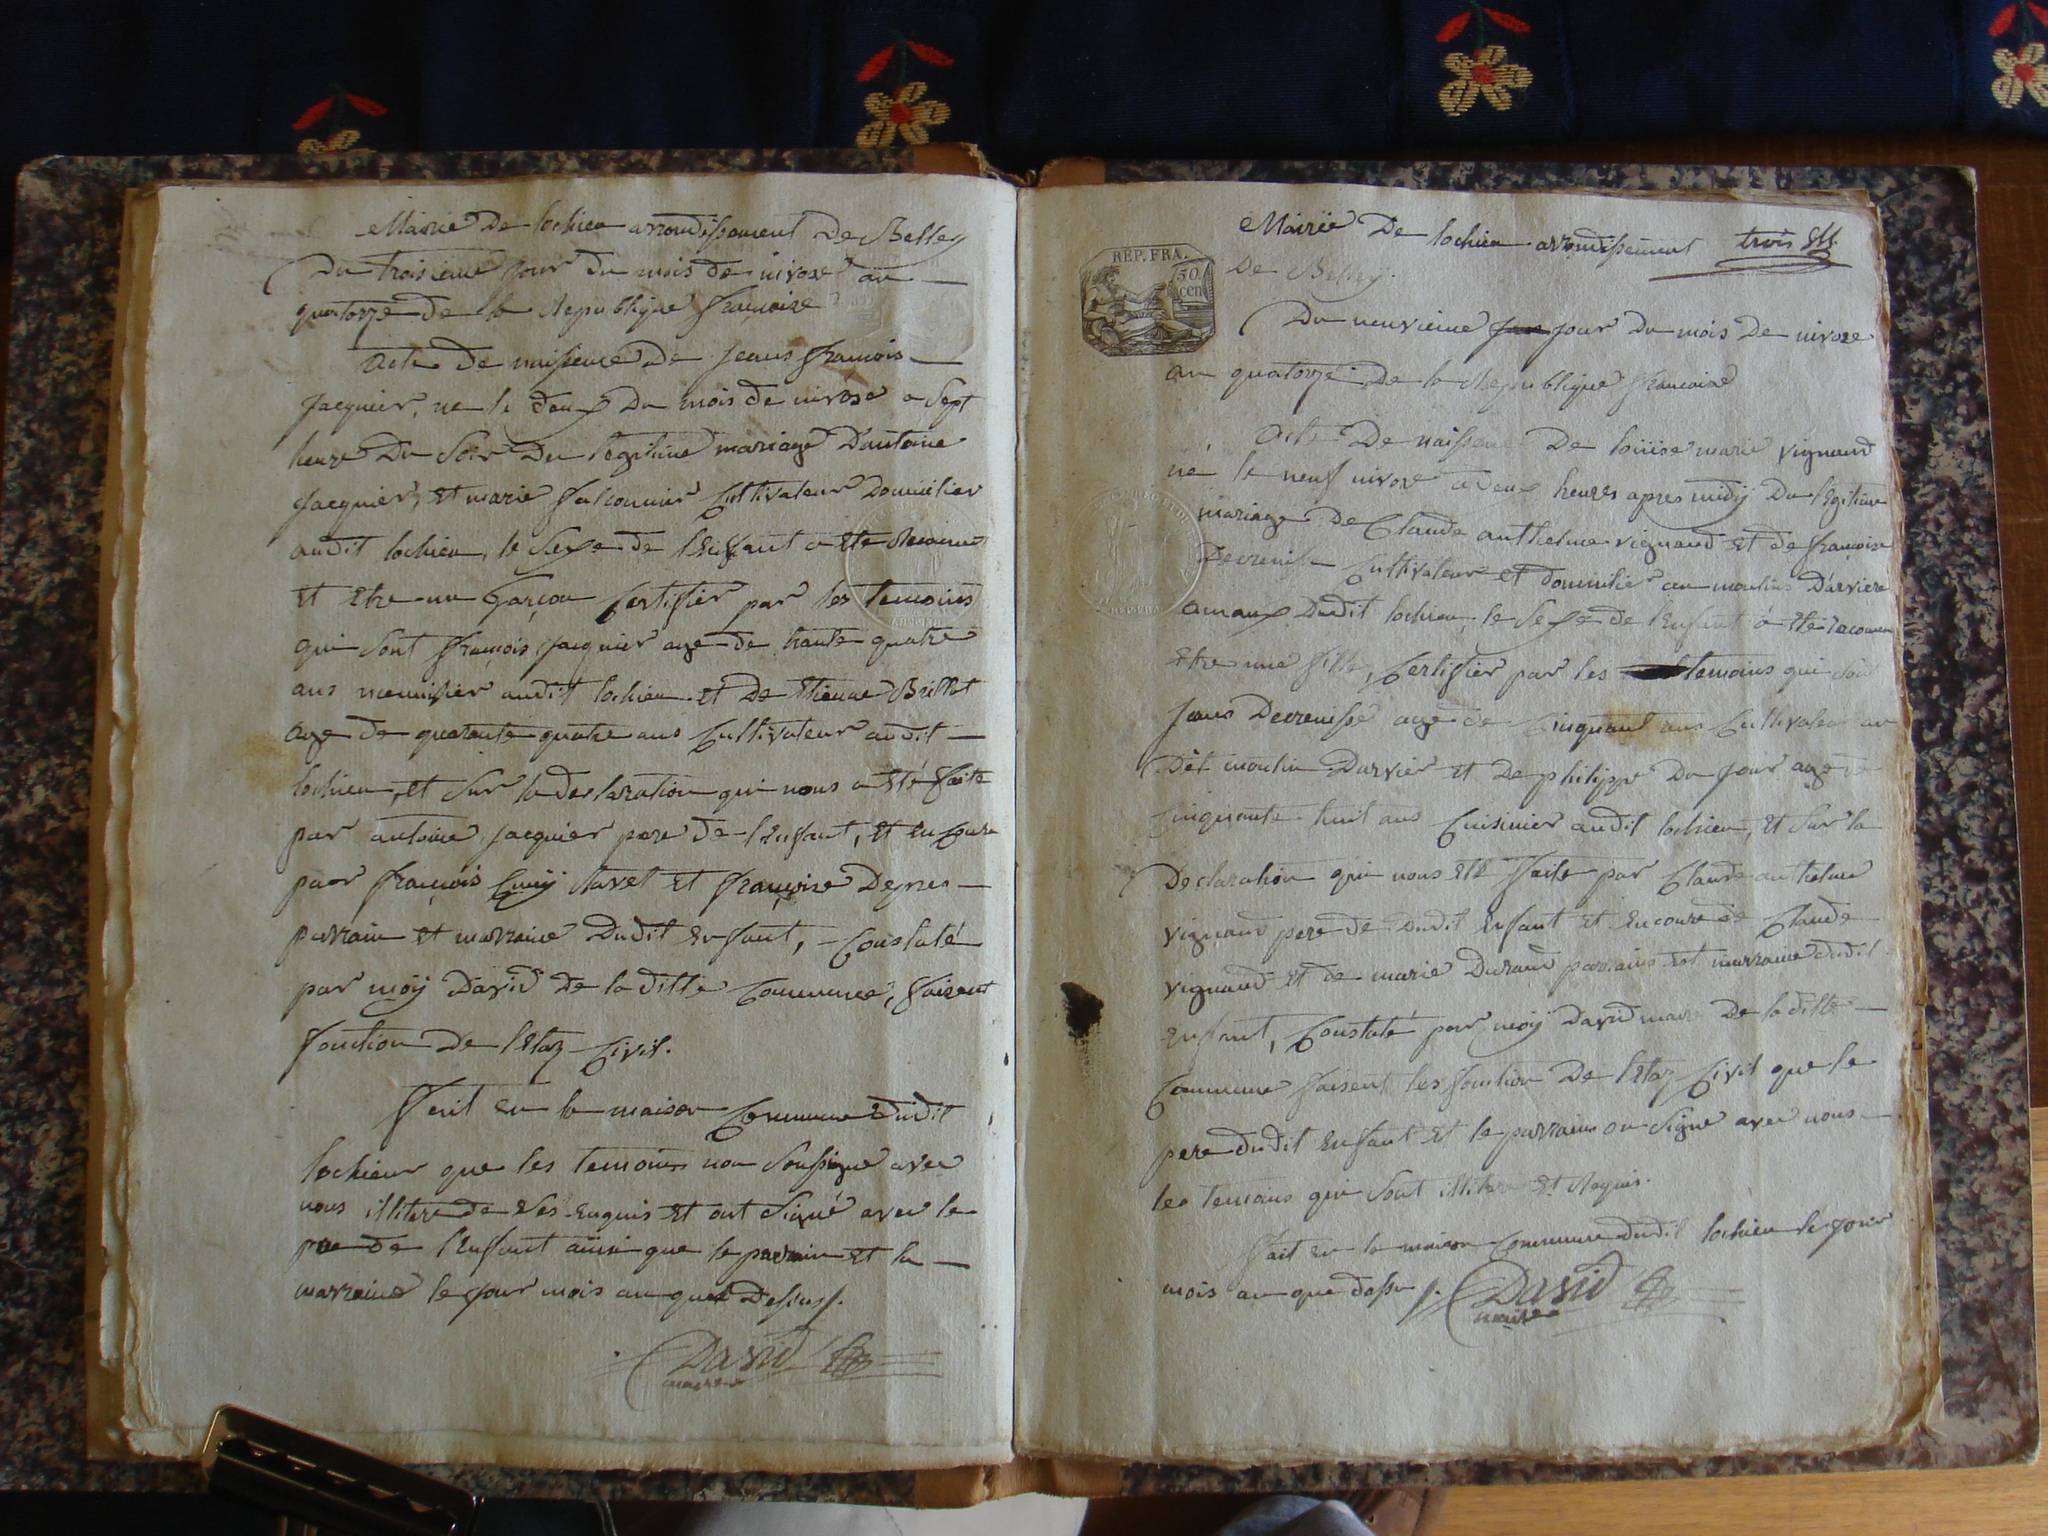 Mairie De lochieu arrondissement De Belley
Du troisieme jour du mois de nivose an
quatorze de la Republique françoise
Acte de naissence de Jeans francois
Jacquier, ne le deux Du mois de nivose a Sept
heure Du Soir Du legitime mariage D'antoine
Jacquier, et marie falconnier Cultivateur Domicilier
audit lochieu, le Sexe de l'enfant a ete reconnut
et etre un Garçon Certifier par les temoins
qui sont françois Jacquier age de trante quatre
ans meunisier audit lochieu et De Etienne Brillat
age de quarante quatre ans Cultivateur audit
lochieu, et sur la declaration qui nous a eté faite
par antoine Jacquier pere de l'enfant, et encoure
par françois Ravet et françoise
parrain et marraine Dudit enfant, Constaté
par moÿ David De la ditte Commune, faisent
fonction De l'etaz Civil.
fait en la maison Commune dudit
lochieu que les temoins non soussigne avec
nous illitere de Ses enquis et ont Signé avec le
pere de l'enfant ainsi que le parrain et la
marraine le jour mois an que Desus
David
maire
REP. FRA.
50
cen
Mairie De lochieu arrondissement trois
De Belley.
Du neuvieme jour Du mois De nivose
an quatorze De la Republique francoise
Acte De naissence De loüise marie vignand
né le neuf nivose a deux heures apres midÿ Du legitime
mariage De Claude anthelme vignand et de francoise
Decrenisse Cultivateur et domicilier au moulins D'arviere
amaux Dudit lochieu, le Sexe de l'enfant a ete reconnu
etre une fille, Certifier par les temoins qui son
Jeans Decrenisse age de Cinquant ans Cultivateur au
Dit moulin Darvier et De philippe Du jour age de
Cinquante huit ans Cuisinier audit lochieu, et sur la
Declaration qui nous ete faite par Claude anthelme
vignand pere de Dudit enfant et encoure de Claude
vignand et de marie Durand parrains et marraine dudit
enfant, Constaté par moÿ David maire De la ditte
Commune faisent les fonction De l'etaz Civil que le
pere dudit enfant et le parrain on Signe avec nous
les temoins qui sont illitere et Requis.
fait en la maison Commune dudit lochieu le jour
mois an que dessu David
maire